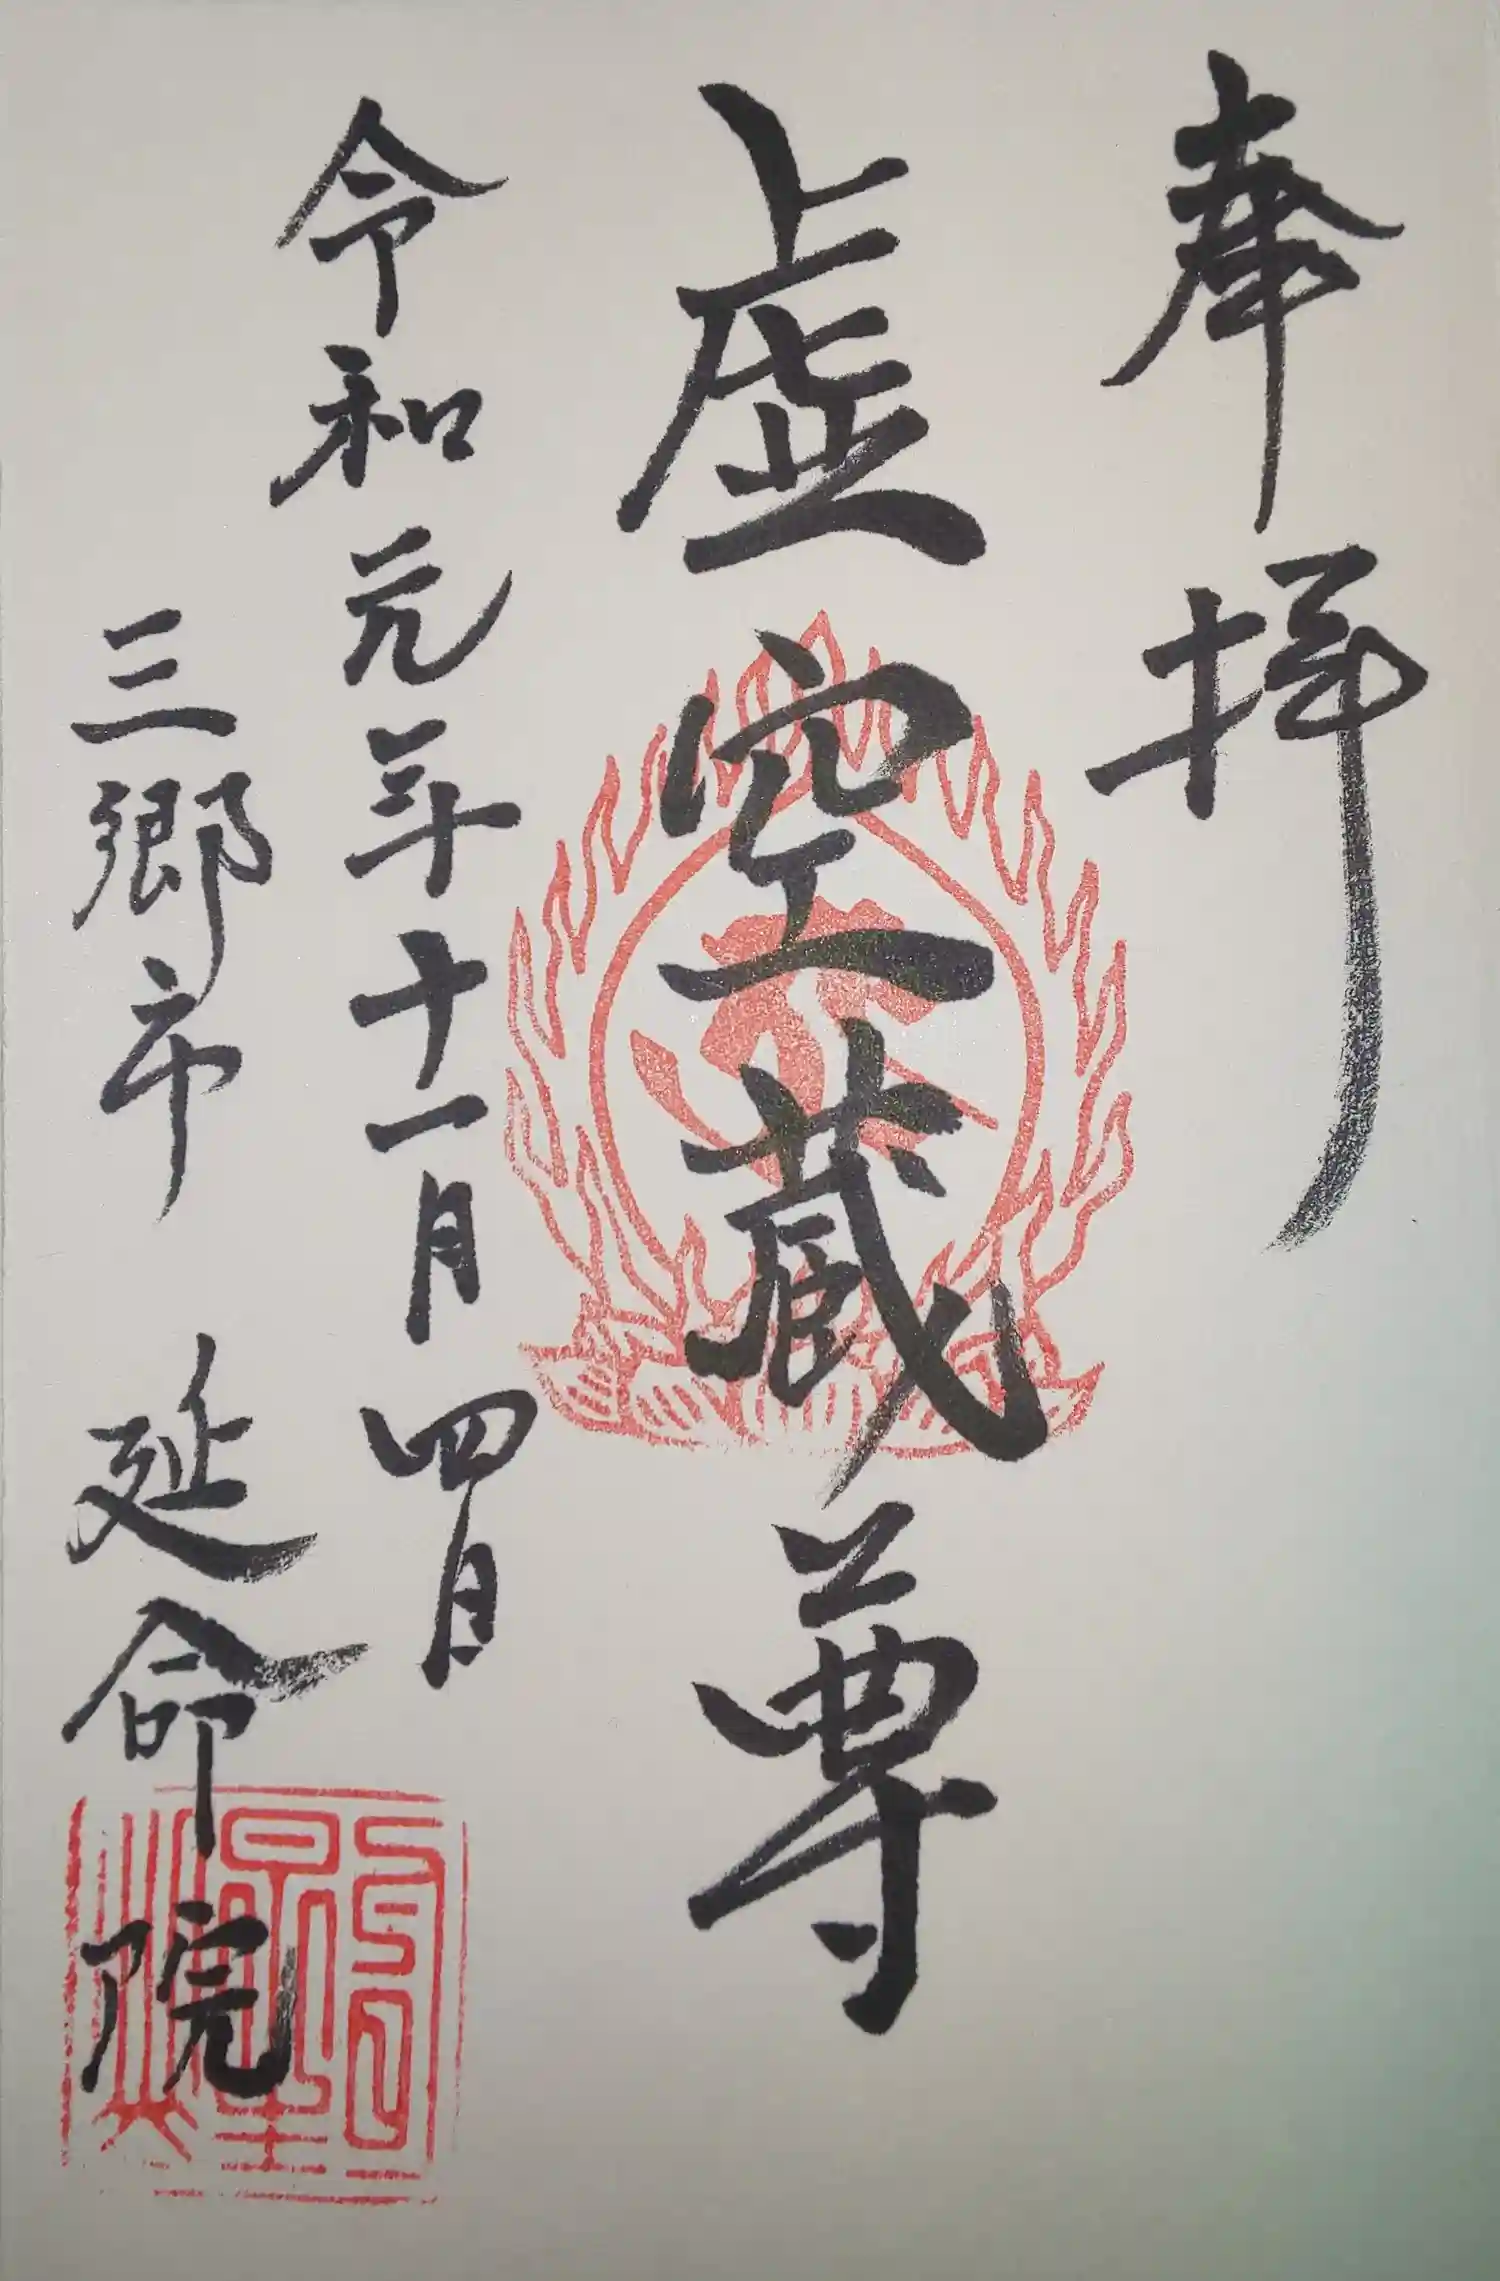 奉拝
虚空蔵尊
令和元年十一月四日
三郷市 延命院